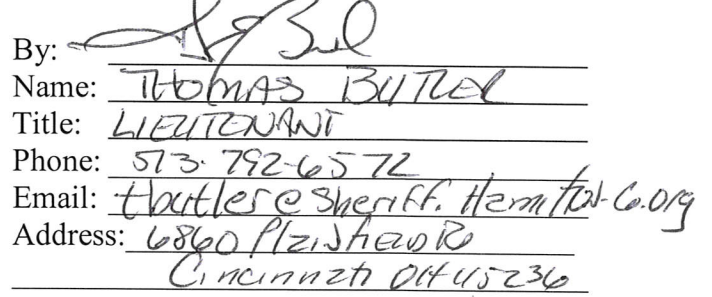 By:
Name: THOMAS BUTLER
Title: LIEUTENANT
Phone: 513-792-6572
Email: tbutler@sheriff.Hamilton-Co.org
Address: 6860 Plainfield Rd
Cincinnati OH 45236